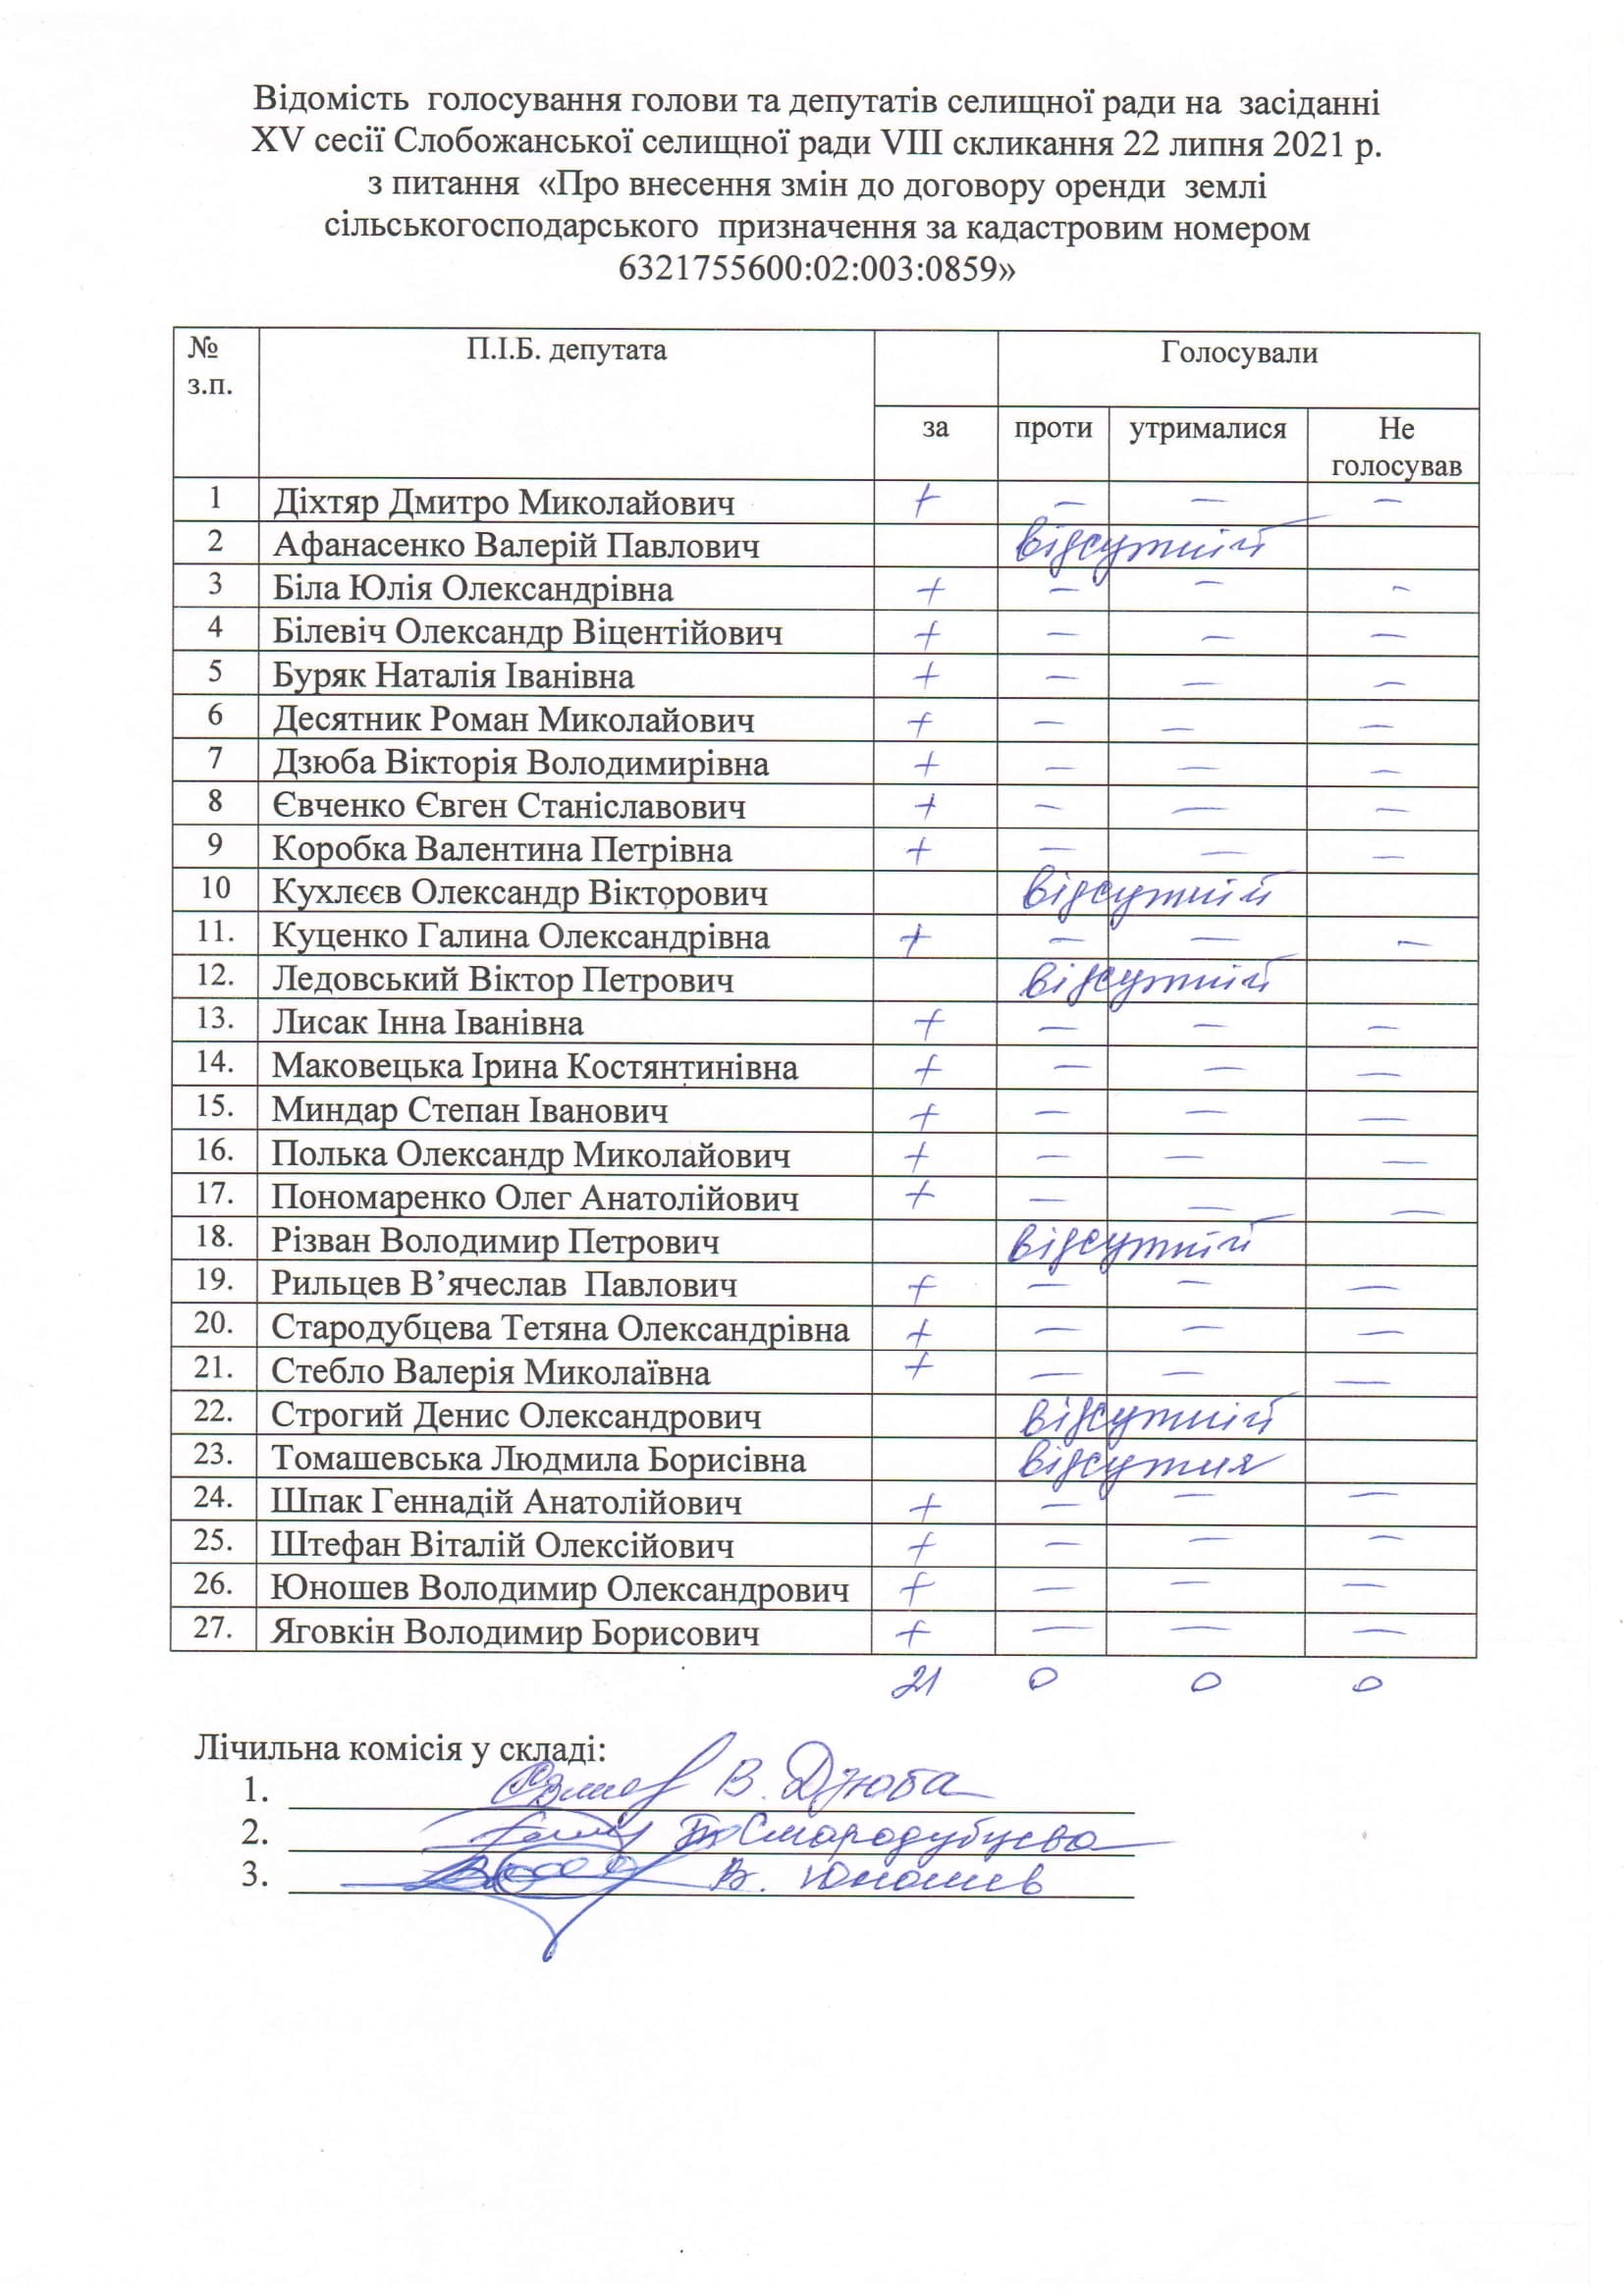 Відомість голосування голови та депутатів селищної ради на засіданні
XV сесії Слобожанської селищної ради VIII скликання 22 липня 2021 р.
з питання «Про внесення змін до договору оренди землі
сільськогосподарського призначення за кадастровим номером
6321755600:02:003:0859»
№ з.п. П.І.Б. депутата Голосували
за проти утрималися Не голосував
1 Діхтяр Дмитро Миколайович + — — —
2 Афанасенко Валерій Павлович відсутній
3 Біла Юлія Олександрівна + — — —
4 Білевіч Олександр Віцентійович + — — —
5 Буряк Наталія Іванівна + — — —
6 Десятник Роман Миколайович + — — —
7 Дзюба Вікторія Володимирівна + — — —
8 Євченко Євген Станіславович + — — —
9 Коробка Валентина Петрівна + — — —
10 Кухлєєв Олександр Вікторович відсутній
11. Куценко Галина Олександрівна + — — —
12. Ледовський Віктор Петрович відсутній
13. Лисак Інна Іванівна + — — —
14. Маковецька Ірина Костянтинівна + — — —
15. Миндар Степан Іванович + — — —
16. Полька Олександр Миколайович + — — —
17. Пономаренко Олег Анатолійович + — — —
18. Різван Володимир Петрович відсутній
19. Рильцев В’ячеслав Павлович + — — —
20. Стародубцева Тетяна Олександрівна + — — —
21. Стебло Валерія Миколаївна + — — —
22. Строгий Денис Олександрович відсутній
23. Томашевська Людмила Борисівна відсутня
24. Шпак Геннадій Анатолійович + — — —
25. Штефан Віталій Олексійович + — — —
26. Юношев Володимир Олександрович + — — —
27. Яговкін Володимир Борисович + — — —
21 0 0 0
Лічильна комісія у складі:
1. В. Дзюба
2. Стародубцева
3. В. Юношев